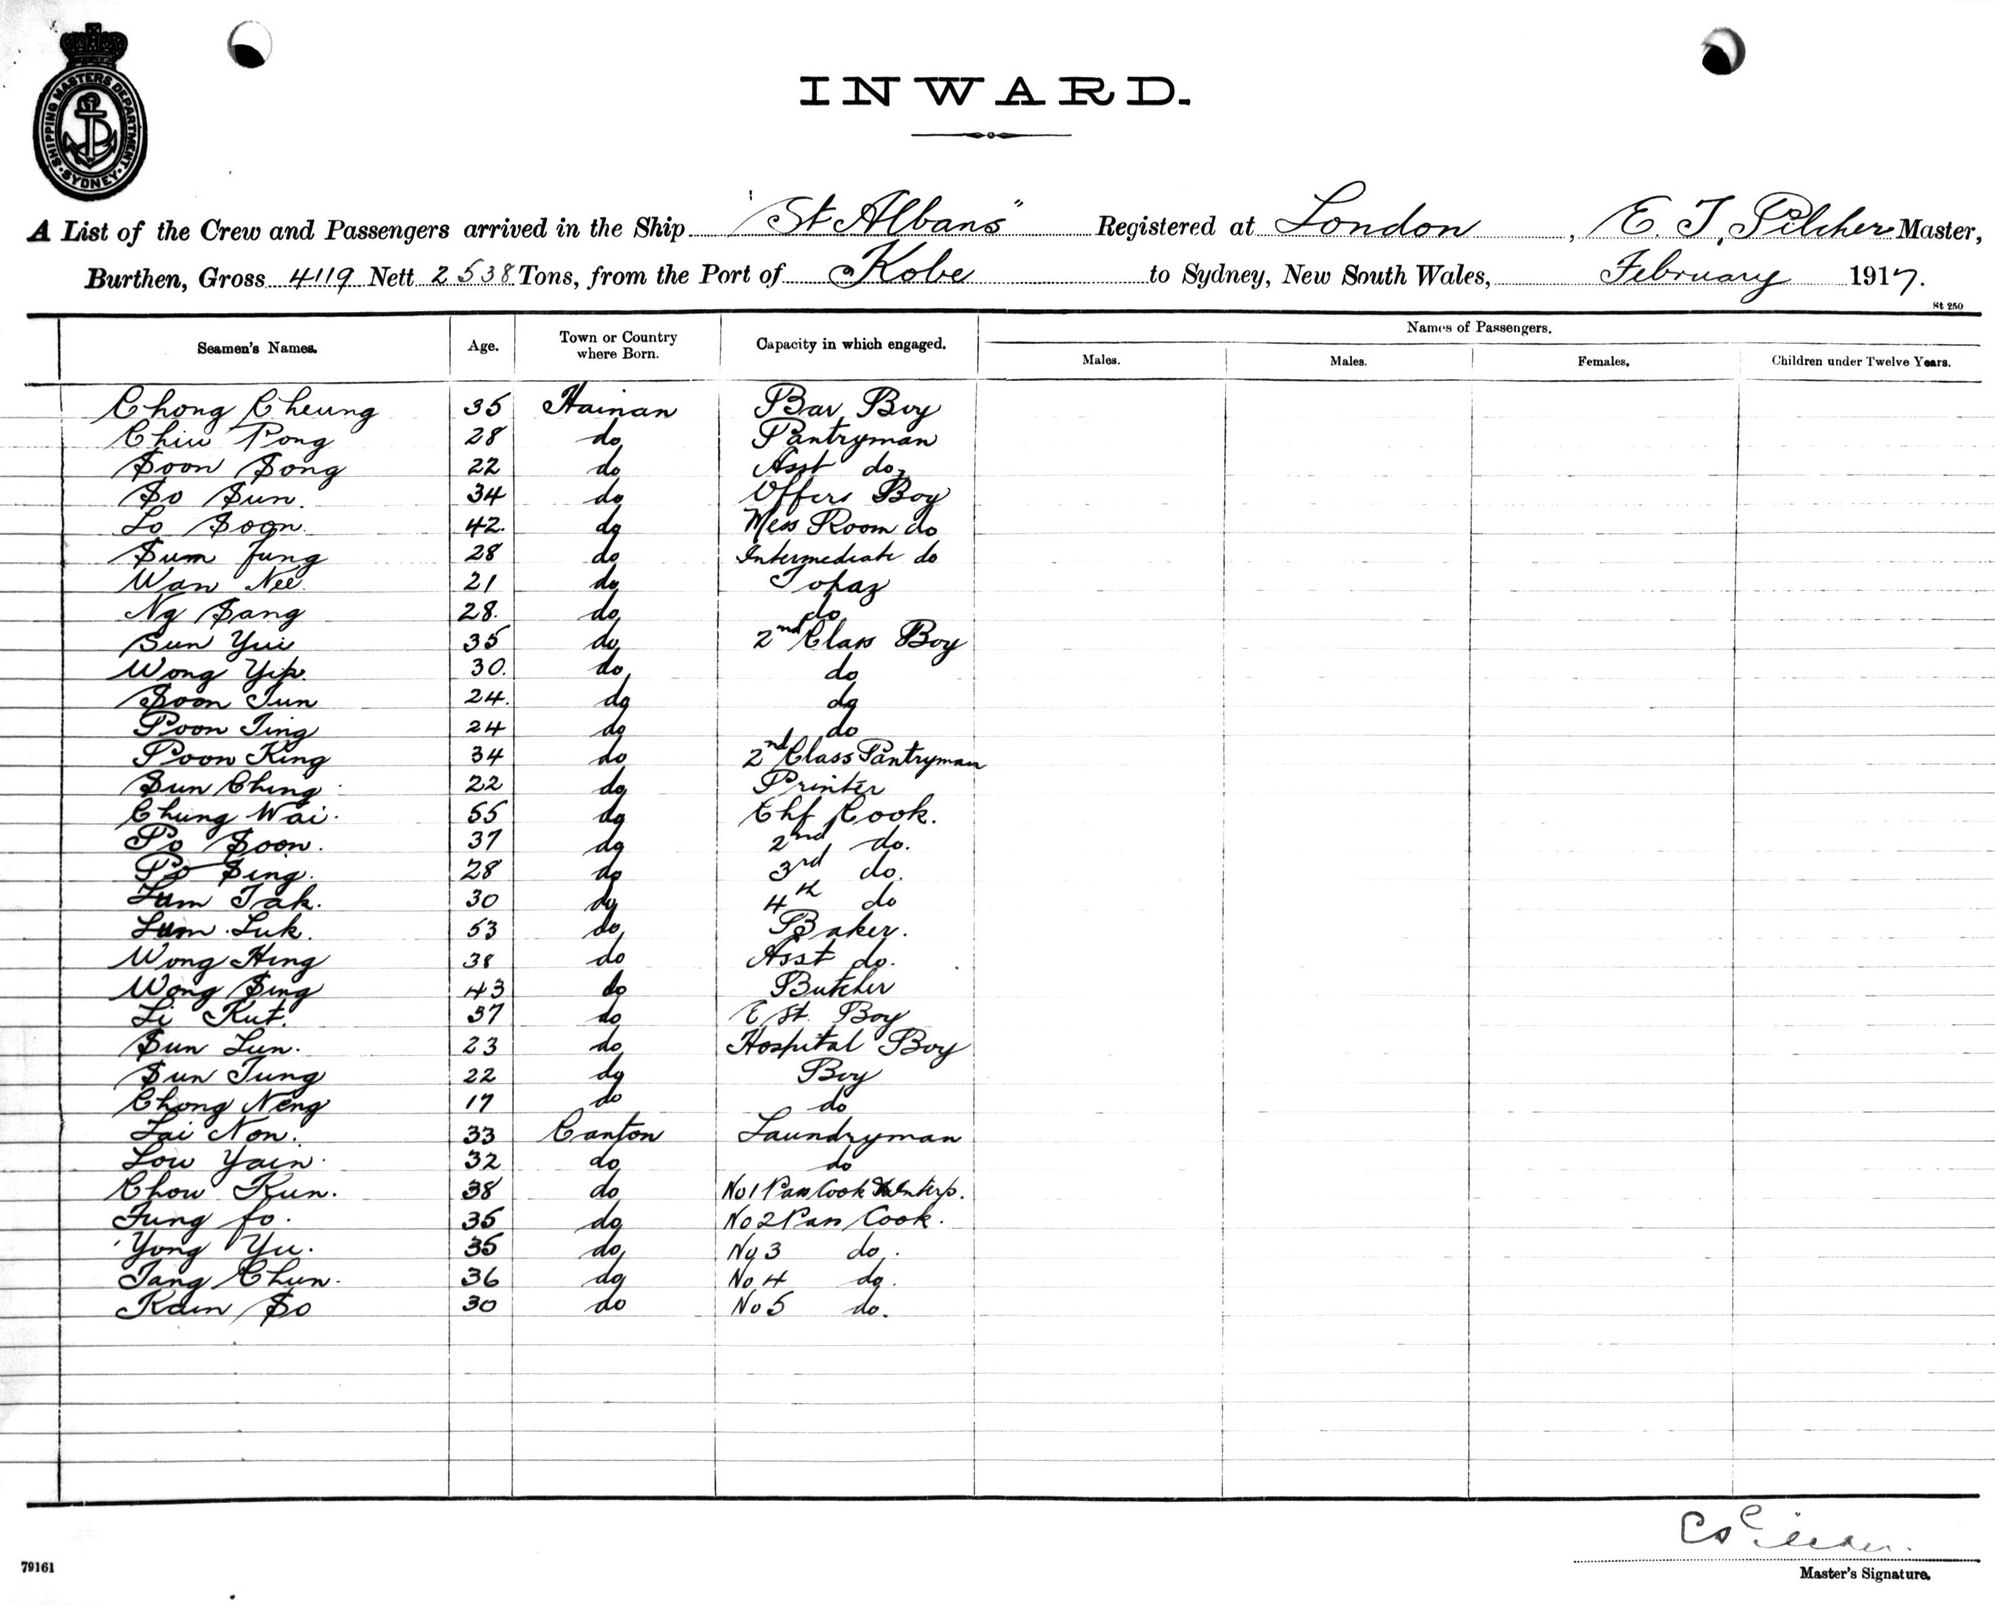 SHIPPING MASTERS DEPARTMENT SYDNEY
INWARD.
A List of the Crew and Passengers arrived in the Ship "St Albans" Registered at London, E. T. Pilcher Master,
Burthen, Gross 4119 Nett 2538 Tons, from the Port of Kobe to Sydney, New South Wales, February 1917.
St 250
Seamen's Names. Age. Town or Country where Born. Capacity in which engaged. Names of Passengers.
Males. Males. Females. Children under Twelve Years.
Chong Cheung 35 Hainan Bar Boy
Chiu Pong 28 do Pantryman
Soon Song 22 do Asst do
So Sun. 34 do Offers Boy
Lo Soon. 42. do Mess Room do
Sum Fung 28 do Intermediate do
Wan Nee. 21 do Topaz
Ng Sang 28. do do
Sun Yui 35 do 2nd Class Boy
Wong Yip. 30. do do
Soon Tun 24. do do
Poon Ting 24 do do
Poon King 34 do 2nd Class Pantryman
Sun Ching 22 do Printer
Chung Wai. 55 do Chf Cook.
Po Soon. 37 do 2nd do.
Po Sing. 28 do 3rd do.
Lum Tak. 30 do 4th do
Lum Luk. 53 do Baker.
Wong Hing 38 do Asst do.
Wong Sing 43 do Butcher
Li Kut. 37 do E St. Boy
Sun Lun. 23 do Hospital Boy
Sun Tung 22 do Boy
Chong Neng 17 do do
Lai Non. 33 Canton Laundryman
Low Yain. 32 do do
Chow Kun. 38 do No 1 Pass Cook
Fung Fo. 35 do No 2 Pass Cook.
Yong Yu. 35 do No 3 do.
Tang Chun. 36 do No 4 do.
Kam So 30 do No 5 do.
79161
Master's Signature.